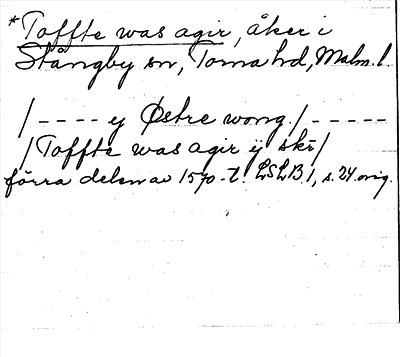 *Toffte was agir, åker i
Stångby sn, Torna hd, Malm. l.
/ - - - - y Østre wong. / - - - - -
/ Toffte was agir ÿ skr̄ /
förra delen av 1570-t. LSLB 1, s. 24. orig.